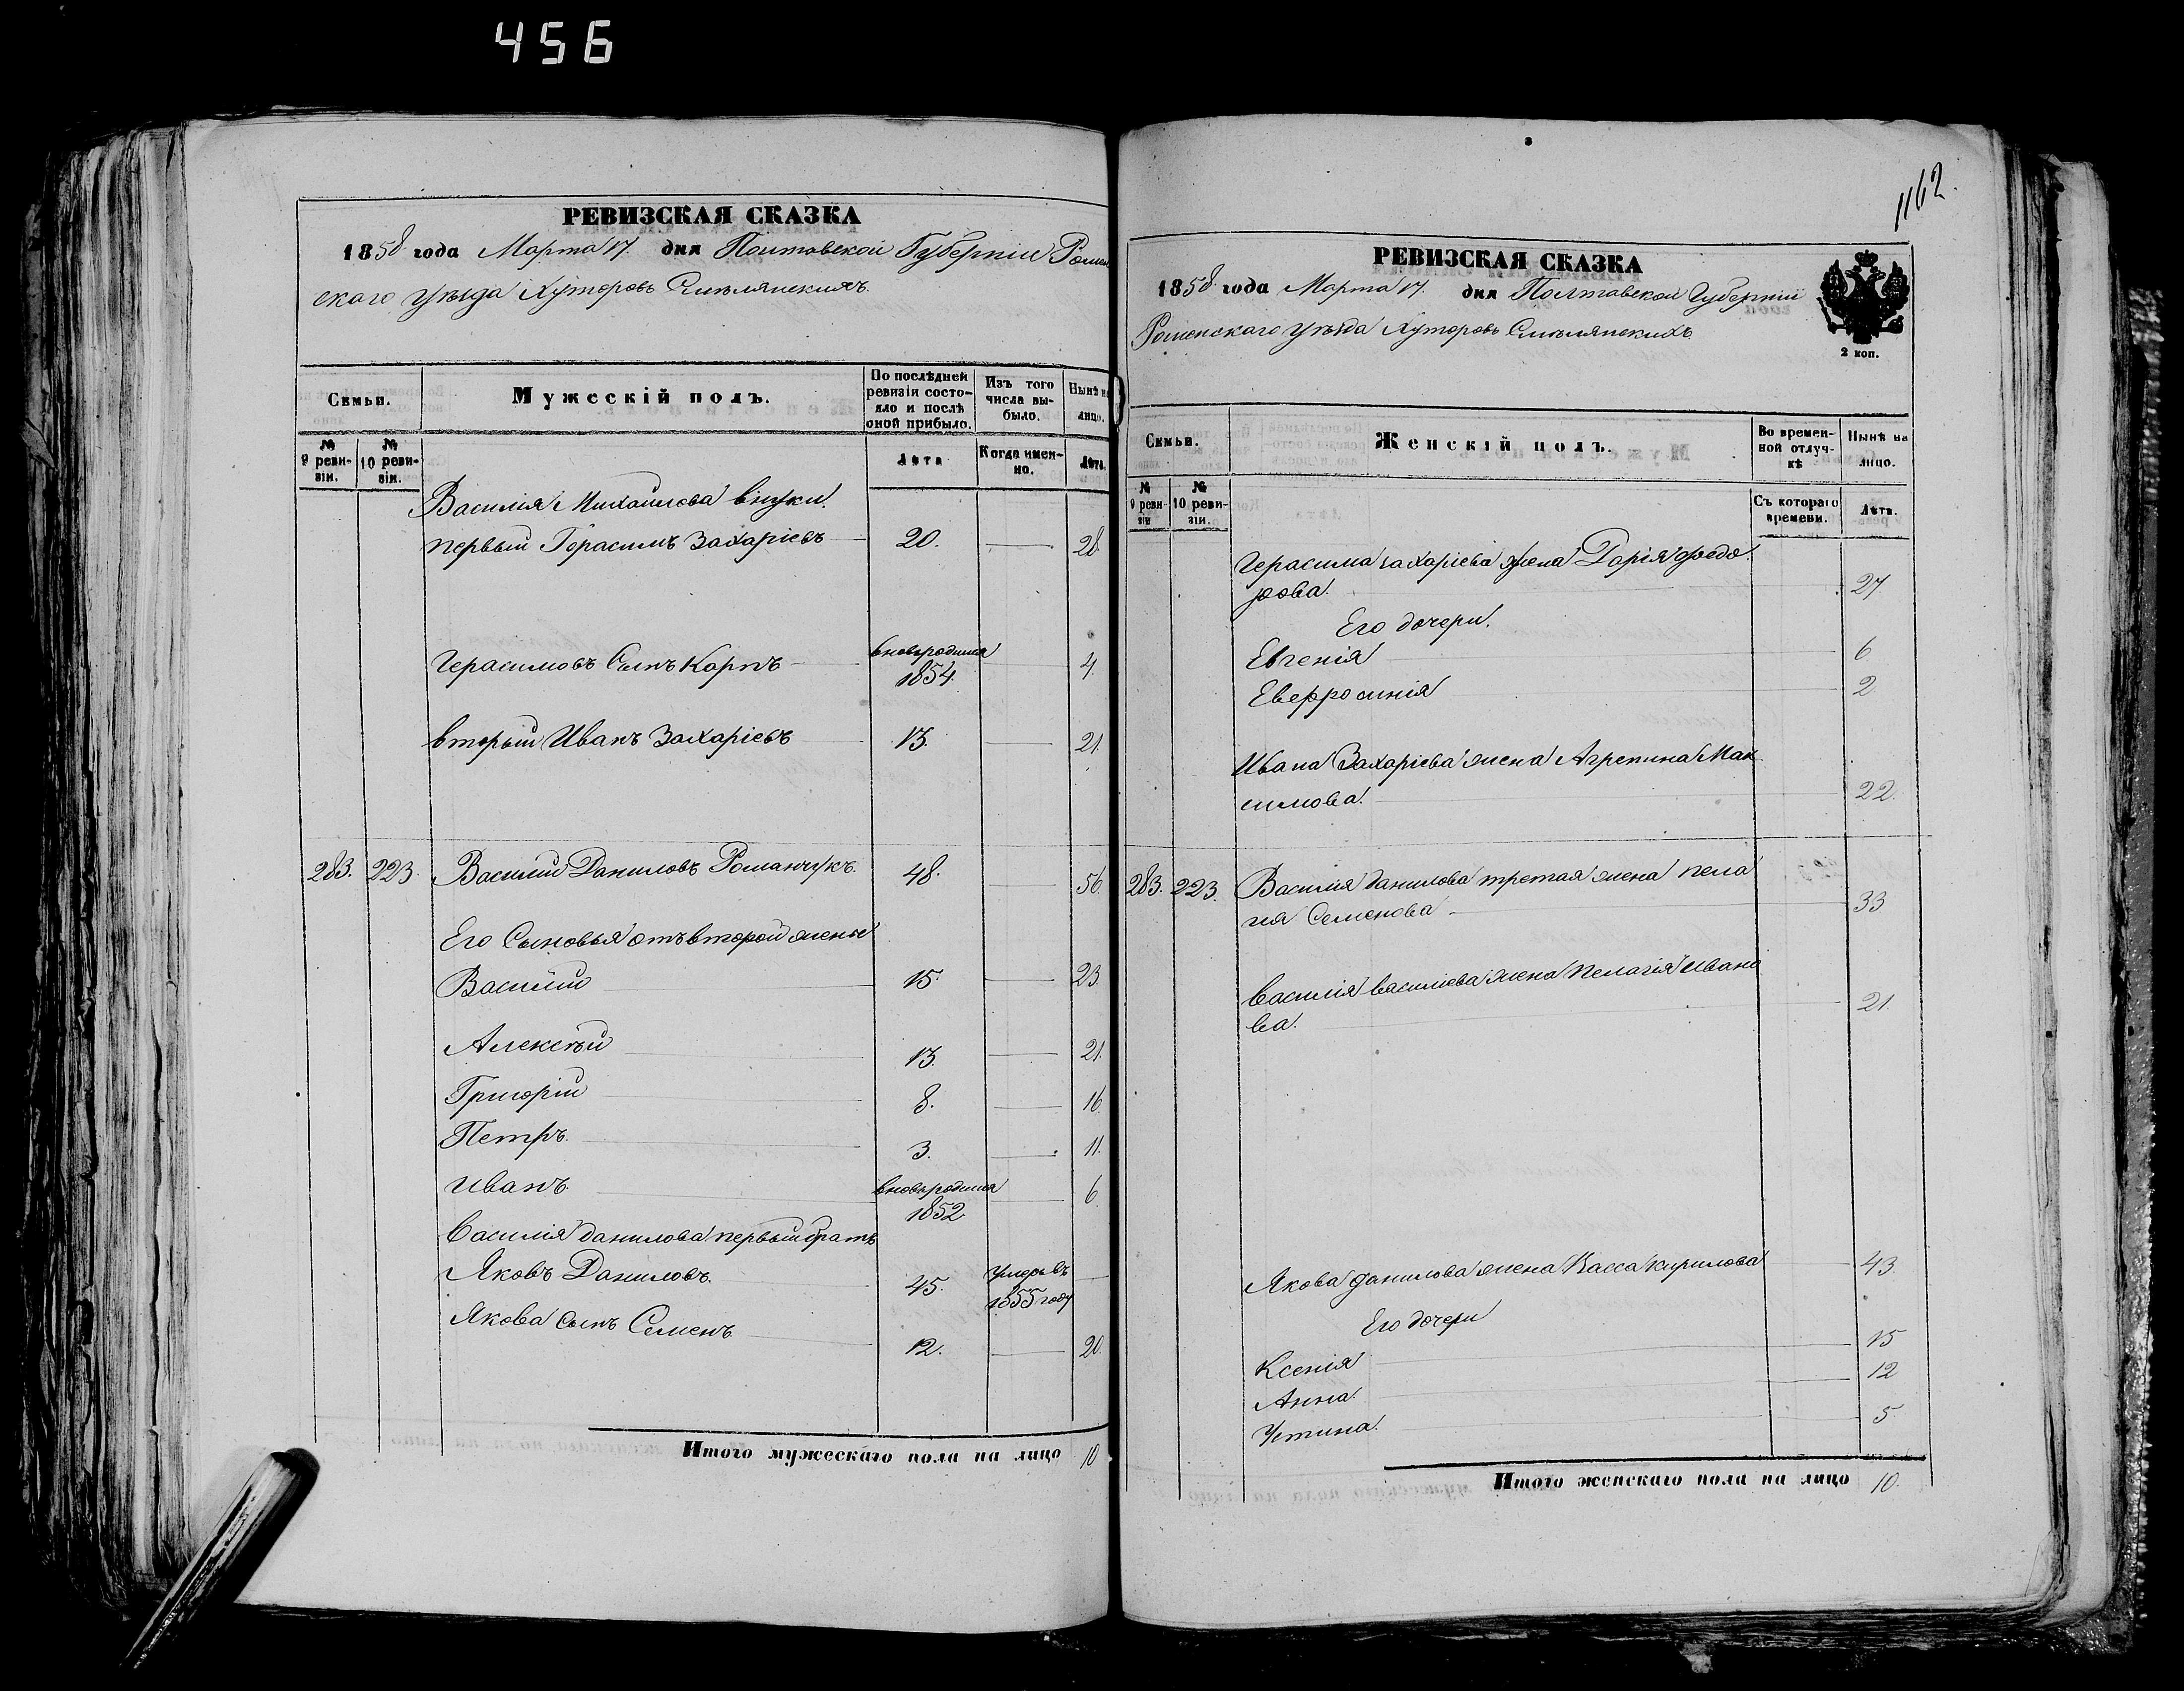 456
РЕВИЗСКАЯ СКАЗКА
1858 года Марта 17. дня Полтавской Губерніи Ромен
скаго уѣзда Хуторовъ Смѣлянскихъ.
Семьи.
Мужескій полъ.
По послѣдней ревизіи состо-
яло и послѣ оной прибыло.
Изъ того числа вы-
было.
Нынѣ на лицо.
№ 9 реви-
зіи.
№ 10 реви-
зіи.
Лѣта
Когда имен-
но.
Лѣта.
Василія Михайлова внуки.
первый Герасимъ Захаріевъ 20. 28.
Герасимовъ Сынъ Карпъ вновьродился 1854. 4.
вторый Иванъ Захаріевъ 13. 21.
283. 223. Василій Даниловъ Романчукъ. 48. 56.
Его Сыновья отъ второй жены
Василій 15. 23.
Алексѣй 13. 21.
Григорій 8. 16.
Петръ. 3. 11.
Иванъ. вновьродился 1852 6.
Василія данилова первый братъ
Яковъ Даниловъ. 45. Умеръ въ 1855 году
Якова сынъ Семенъ 12. 20.
Итого мужескаго пола на лицо 10
1162.
РЕВИЗСКАЯ СКАЗКА
1858 года Марта 17. дня Полтавской Губерніи
Роменскаго уѣзда Хуторовъ Смѣлянскихъ.
2 коп.
Семьи.
Женскій полъ.
Во времен-
ной отлуч-
кѣ
Нынѣ на лицо.
№ 9 реви-
зіи
№ 10 реви-
зіи.
Съ котораго времени.
Лѣта.
Герасима захаріева жена Дарія Федо
рова. 27
Его дочери.
Евгенія 6
Евфросинія 2
Ивана Захаріева жена Агрепина Мак
симова. 22.
283. 223. Василія данилова третая жена пела
гия Семенова 33
василія василіева жена Пелагія Ивано
ва. 21.
Якова данилова жена Васса кирилова 43.
Его дочери
Ксенія 15
Анна. 12
Устина. 5.
Итого женскаго пола на лицо 10.